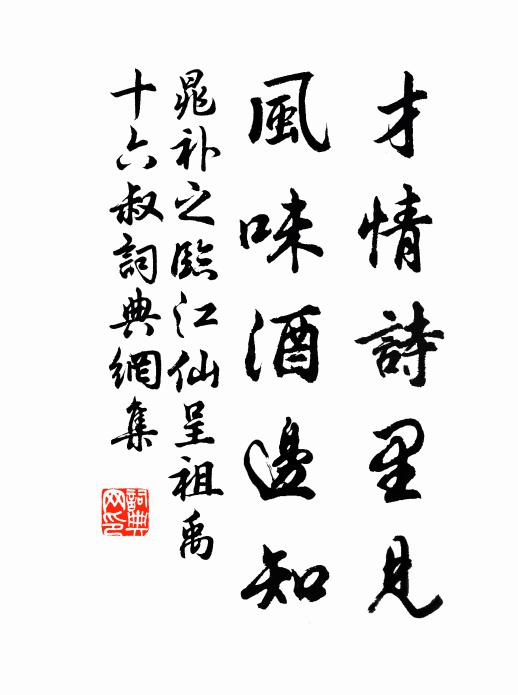 才情詩里見
風味酒邊知
晁补之臨江仙呈祖禹
十六叔詞典網集
詞典
网印